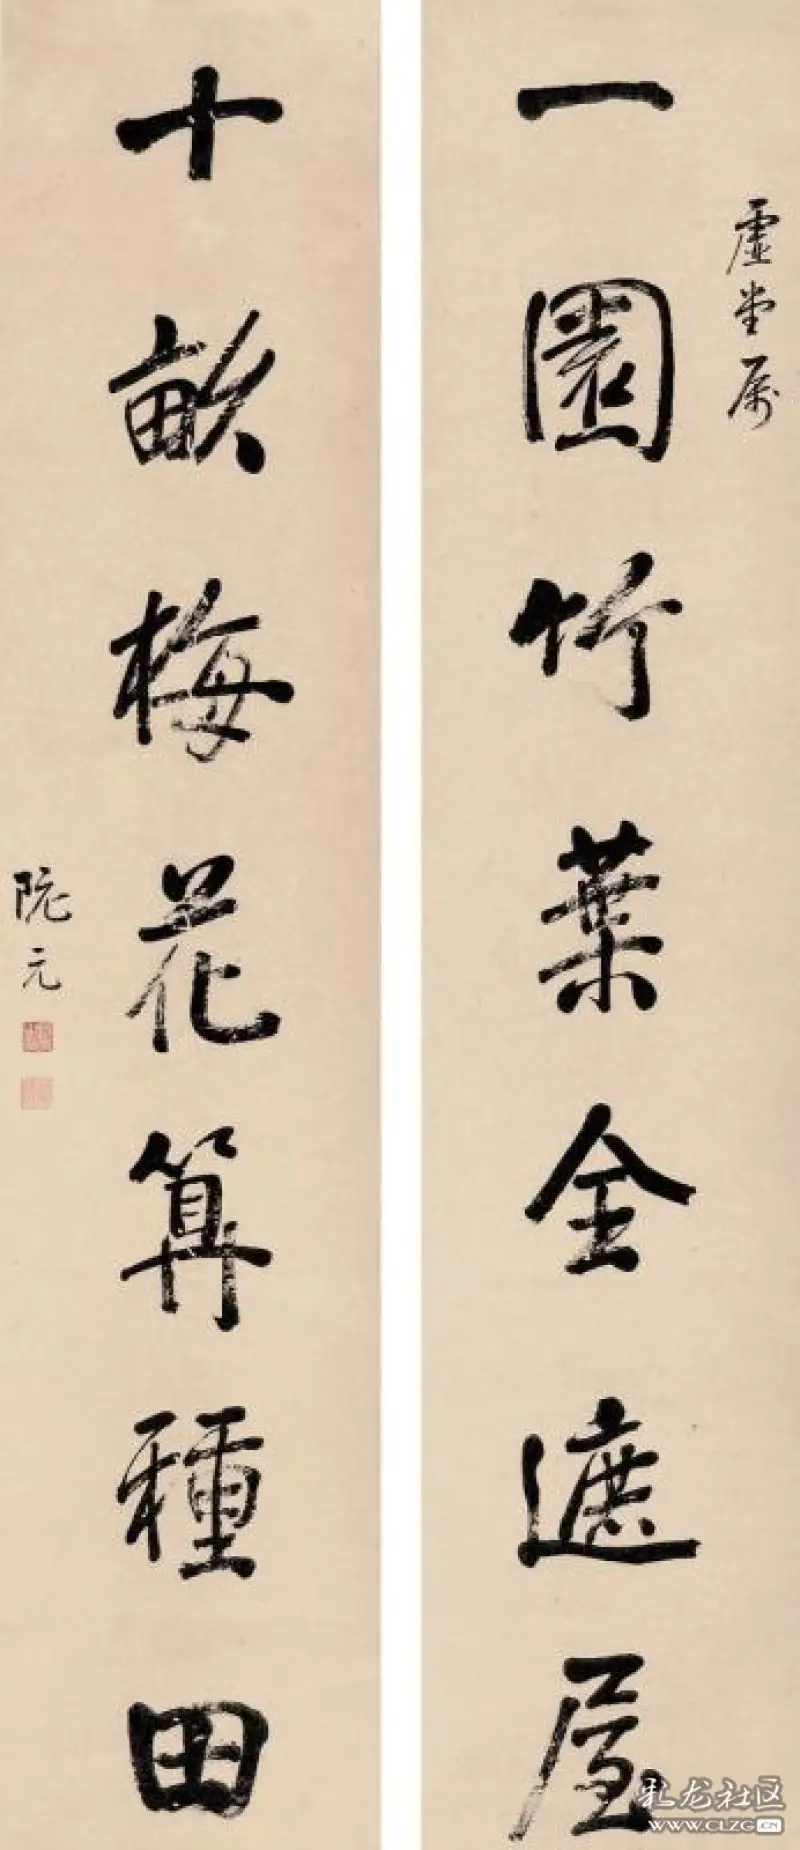 虛堂屬
一園竹葉全遮屋
十畝梅花算種田
阮元
乳龙社区
WWW.CLZG.CN